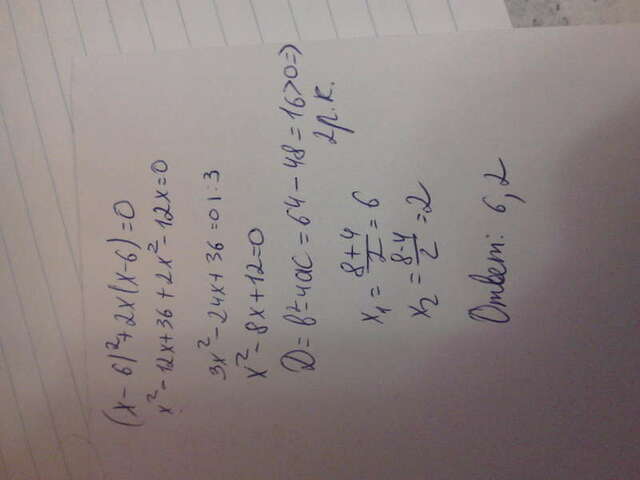 (x-6)²+2x(x-6)=0
x²-12x+36+2x²-12x=0
3x²-24x+36=0 |:3
x²-8x+12=0
D=b²-4ac=64-48=16>0=>
2р.к.
x₁=8+4/2=6
x₂=8-4/2=2
Ответ: 6,2